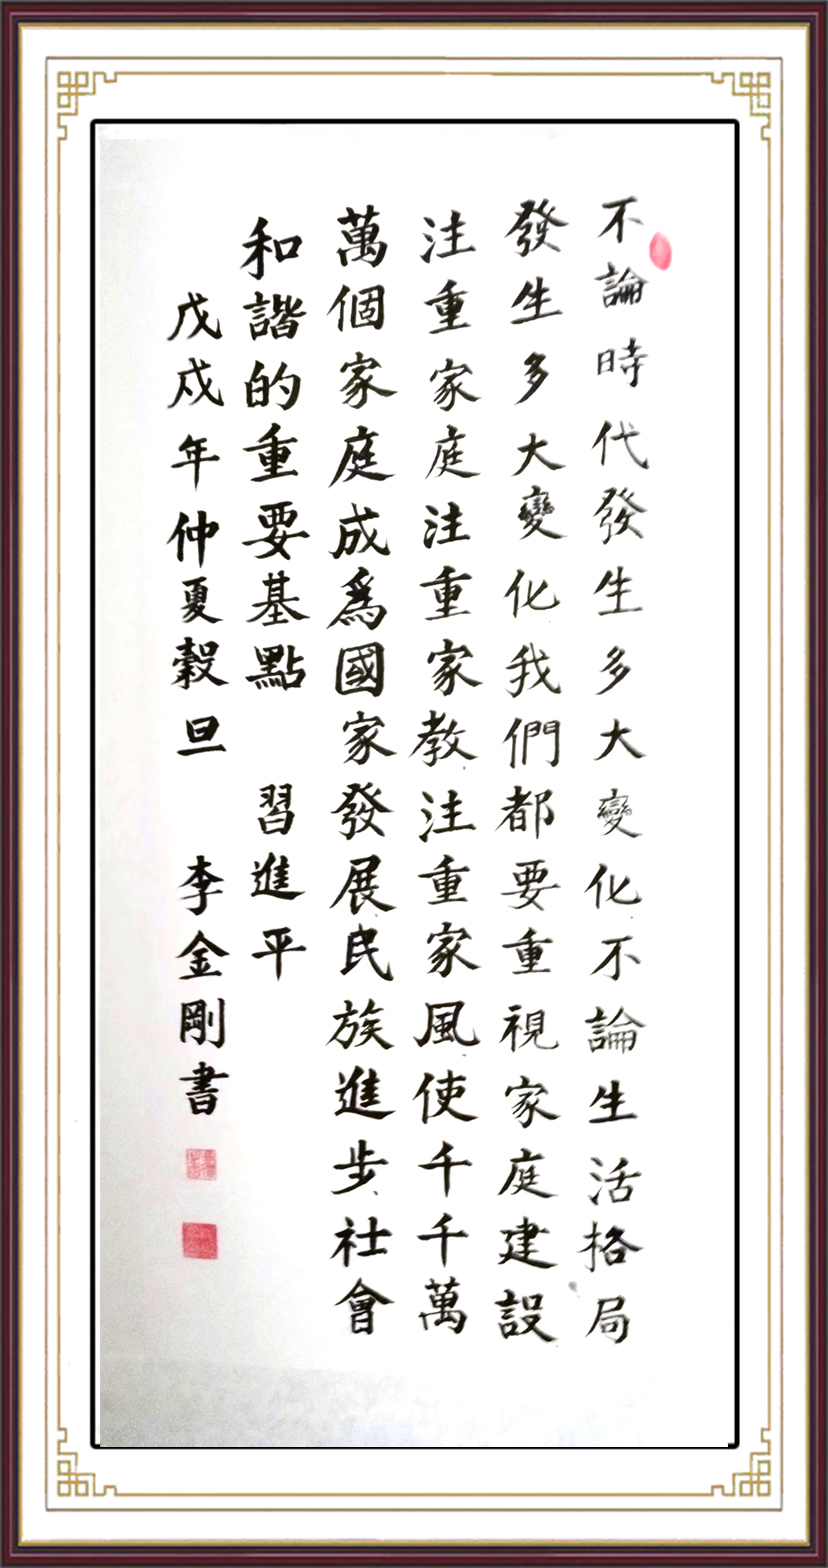 不論時代發生多大變化不論生活格局
發生多大變化我們都要重視家庭建設
注重家庭注重家教注重家風使千千萬
萬個家庭成爲國家發展民族進步社會
和諧的重要基點 習進平
戊戍年仲夏穀旦 李金剛書